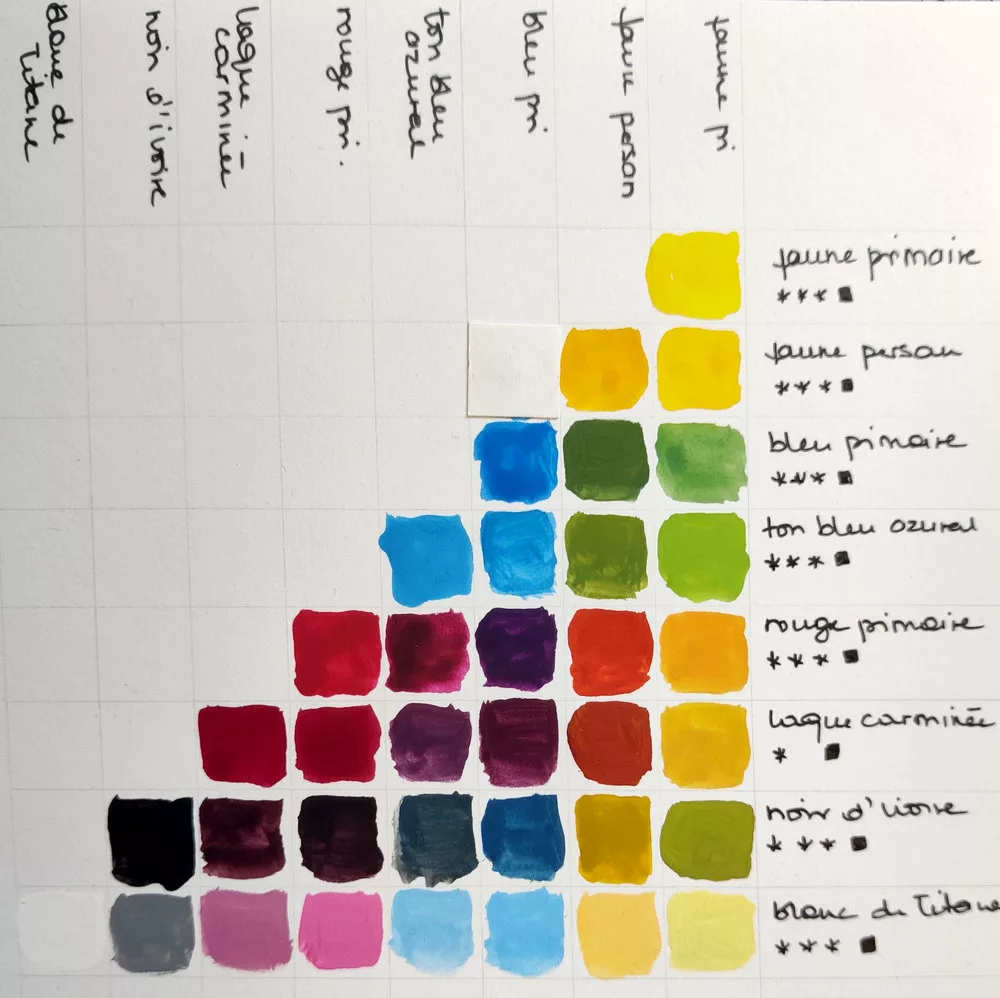 blanc de
Titane
noir d'ivoire
laque
carminée
rouge pri.
ton bleu
azural
bleu pri
jaune person
jaune pri
jaune primaire
*** ■
jaune persan
*** ■
bleu pimaire
*** ■
ton bleu azural
*** ■
rouge primaire
*** ■
laque carminée
* ■
noir d'ivoire
*** ■
blanc de Titane
*** ■